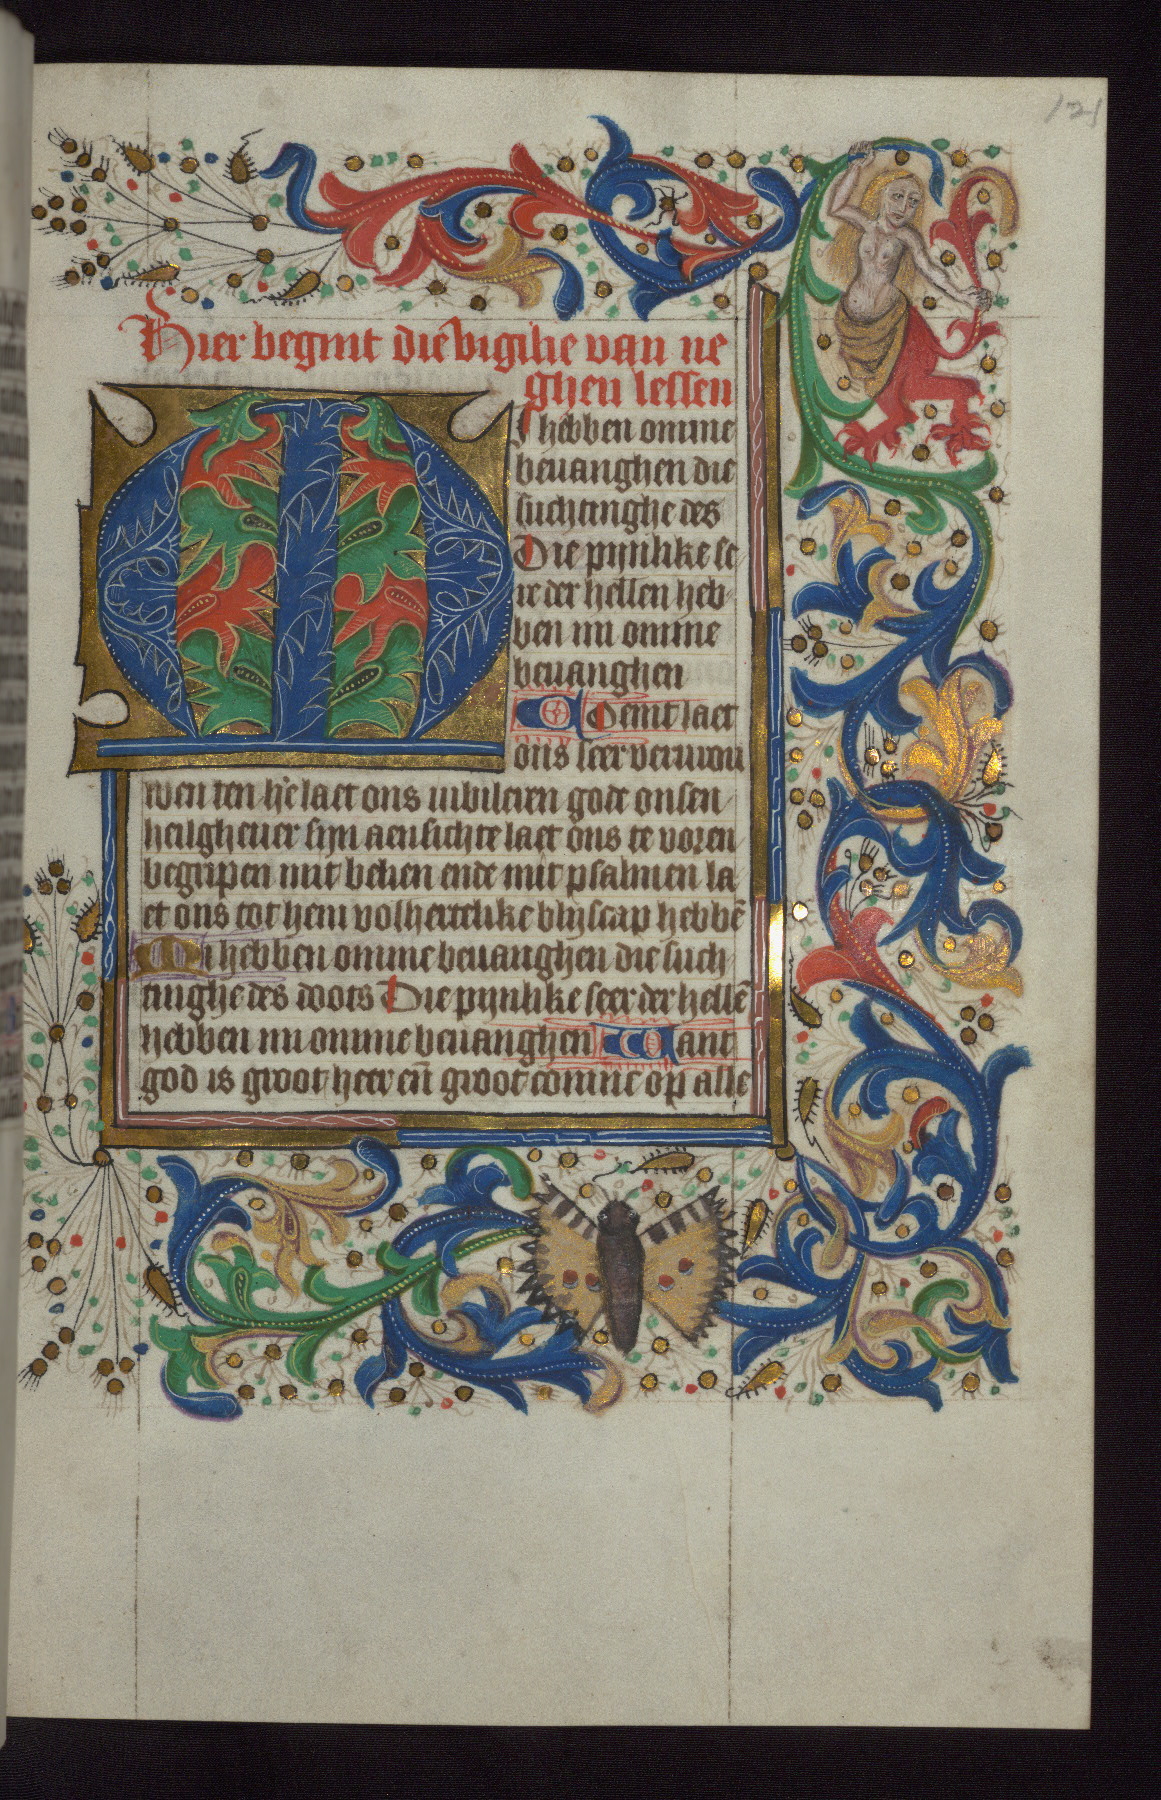 121
Hier begint die vigilie van ne
ghen lessen
M
I hebben omme
bevanghen die
suchtinghe des
Die pijnlike se
ir der hellen heb
ben mi omme
bevanghen
Comt laet
ons seer verurou
wen ten he laet ons iubileren gode onsen
heilghever sijn aensichte laet ons te voren
begripen mit belien ende mit psalmen la
et ons tot hem volhertelike blijscap hebbē
Mi hebben omme bevanghen die such
tinghe des doots Die pijnlike seer der hellē
hebben mi omme bevanghen Want
god is groot heer eñ groot coninc op alle